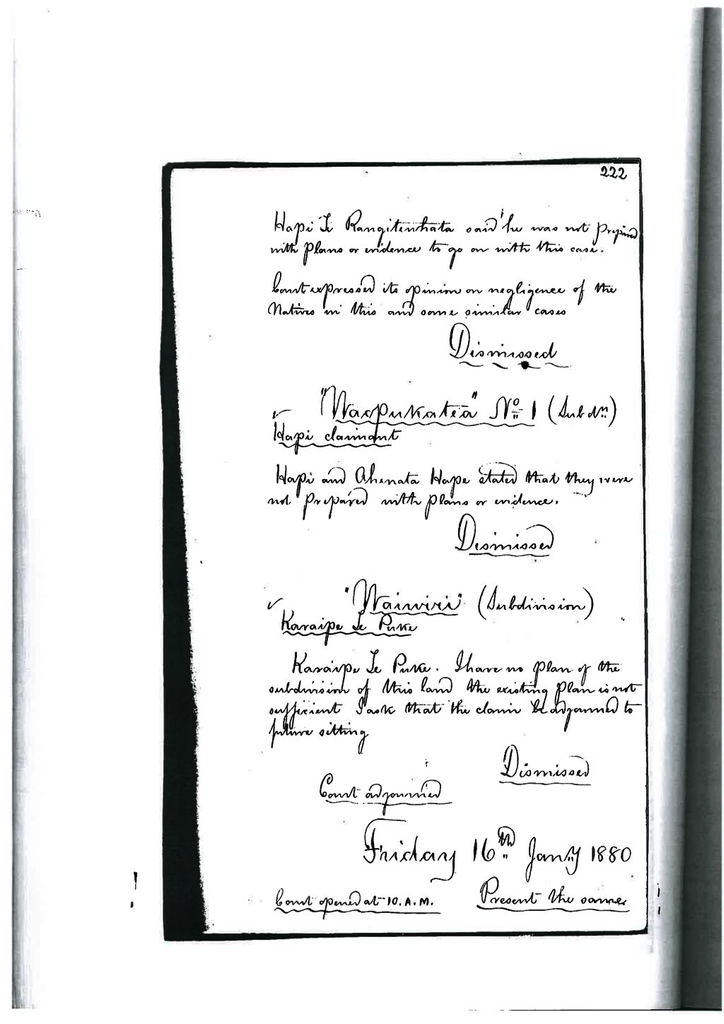 222
Hapi Te Rangitewhata said he was not prepared
with plans or evidence to go on with this case.
Court expressed its opinion on negligence of the
Natives in this and some similar cases
Dismissed
"Waopukatea" No 1 (Subdn)
Hapi claimant
Hapi and Ahenata Hape stated that they were
not prepared with plans or evidence.
Dismissed
"Waiwiri" (Subdivision)
Karaipe Te Puke
Karaipe Te Puke. I have no plan of the
subdivision of this land the existing plan is not
sufficient I ask that the claim be adjourned to
future sitting
Dismissed
Court adjourned
Friday 16th Jany 1880
Court opened at 10. A.M. Present the same